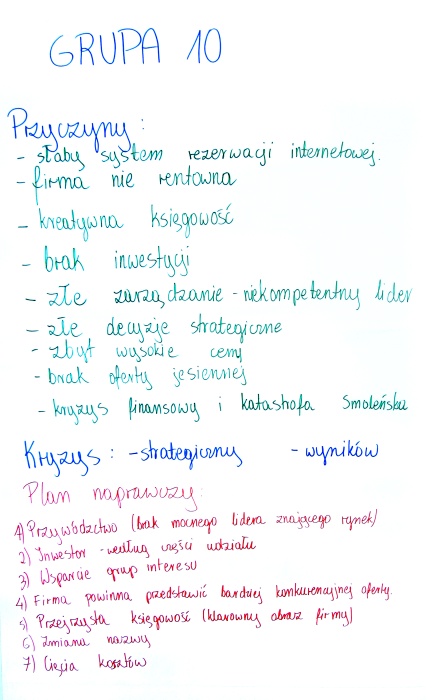 GRUPA 10
Przyczyny:
- słaby system rezerwacji internetowej.
- firma nie rentowna
- kreatywna księgowość
- brak inwestycji
- złe zarządzanie - niekompetentny lider
- złe decyzje strategiczne
- zbyt wysokie ceny
- brak oferty jesiennej
- kryzys finansowy i katastrofa Smoleńska
Kryzys: - strategiczny - wyników
Plan naprawczy:
1) Przywództwo (brak mocnego lidera znającego rynek)
2) Inwestor - według części udziału
3) Wsparcie grup interesu
4) Firma powinna przedstawić bardziej konkurencyjnej oferty.
5) Przejrzysta księgowość (klarowny obraz firmy)
6) Zmiana nazwy
7) Cięcia kosztów